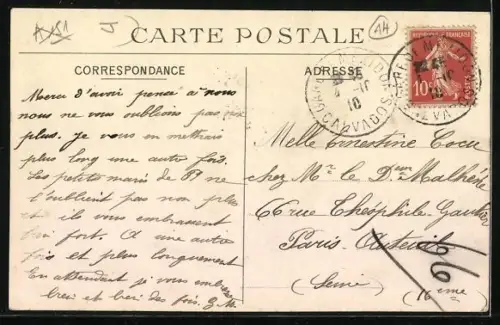 A451
J
44
CARTE POSTALE
CORRESPONDANCE
ADRESSE
Merci d'avoir pensé à nous
nous ne vous oublions pas non
plus. Je vous en mettrais
plus long une autre fois.
Les petites mains de ne
t'oublient pas non plus
et ils vous embrassent
bien fort. A une autre
fois et plus longuement
En attendant je vous embrasse
bien et bien des fois. G.M.
REPUBLIQUE FRANÇAISE
10
CALVADOS
10
Melle Ernestine Cocu
chez Mr le Dr Malherbe
66 rue Théophile-Gautier
Paris-Auteuil
(Seine)
(16ème)
66